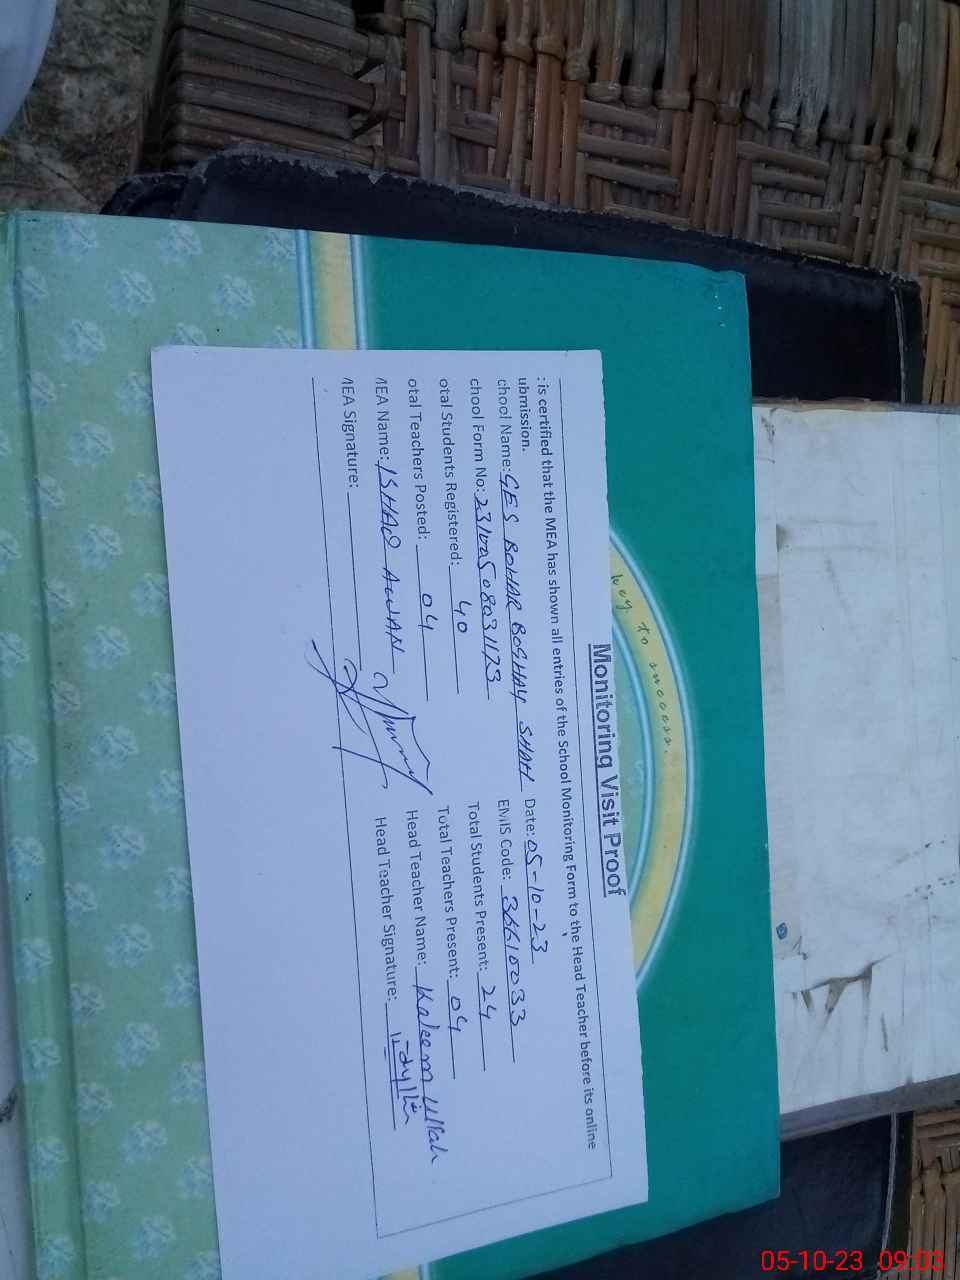 key to success.
Monitoring Visit Proof
: is certified that the MEA has shown all entries of the School Monitoring Form to the Head Teacher before its online
ubmission.
chool Name: GES BOHAR BOGHAY SHAH Date: 05-10-23
chool Form No: EMIS Code: 36610033
otal Students Registered: 40 Total Students Present: 24
otal Teachers Posted: 04 Total Teachers Present: 04
MEA Name: ISHAQ AWAN Head Teacher Name: Kaleem Ullah
MEA Signature: Head Teacher Signature:
05-10-23 09:03